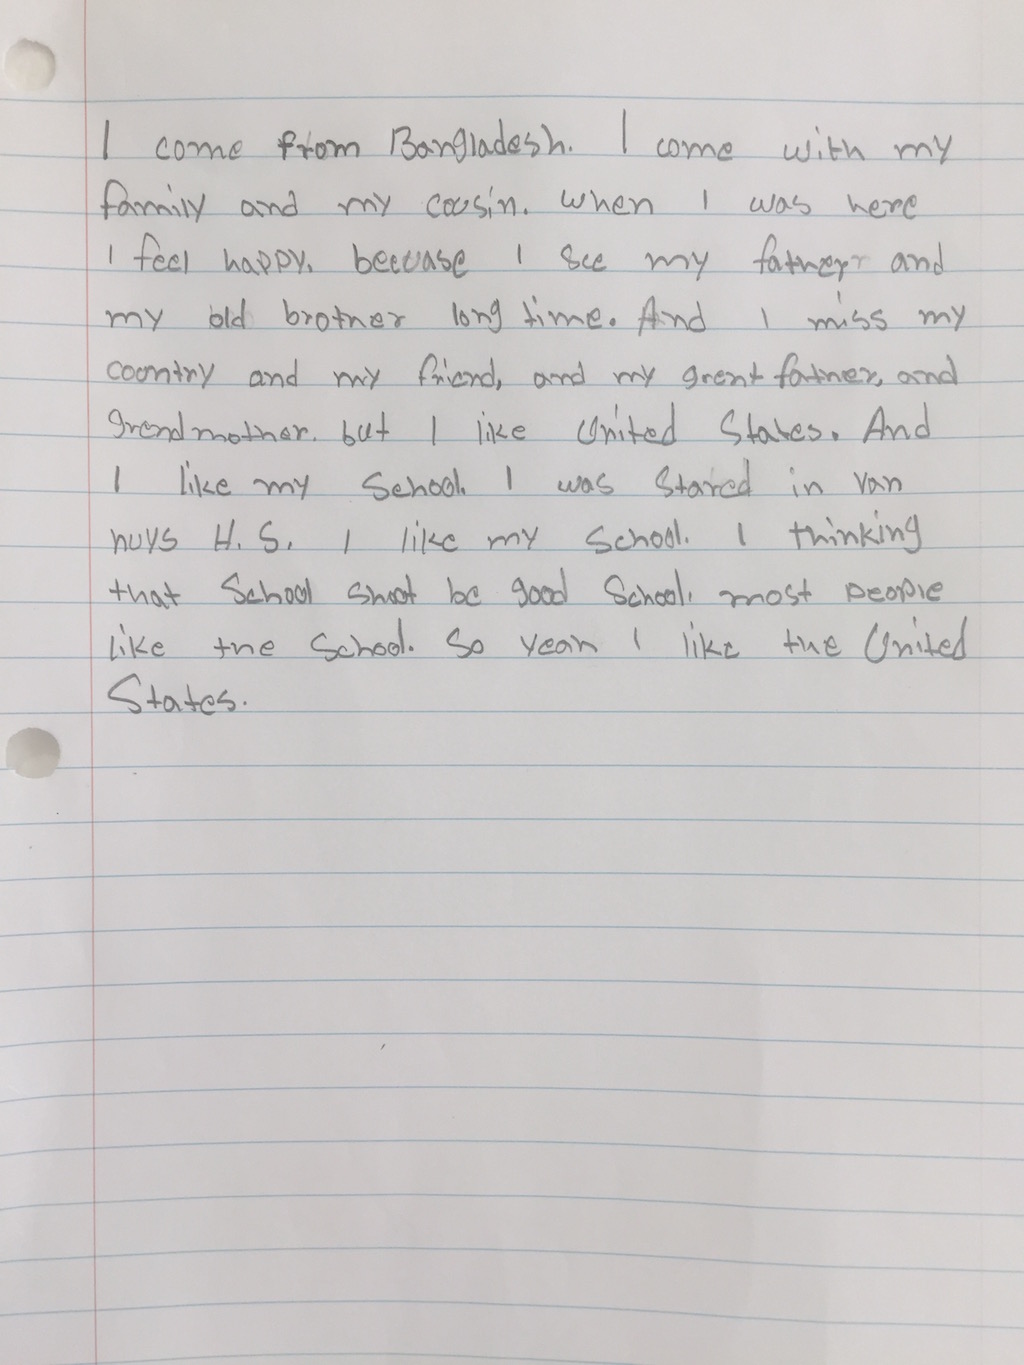 I come from Bangladesh. I come with my
family and my cousin. when I was here
I feel happy. beecuase I see my father and
my old brother long time. And I miss my
coontry and my friend, and my grent father, and
grendmother. but I like United States. And
I like my School. I was Stared in Van
nuys H. S. I like my School. I thinking
that School shoot be good School. most people
like the School. So yeah I like the United
States.